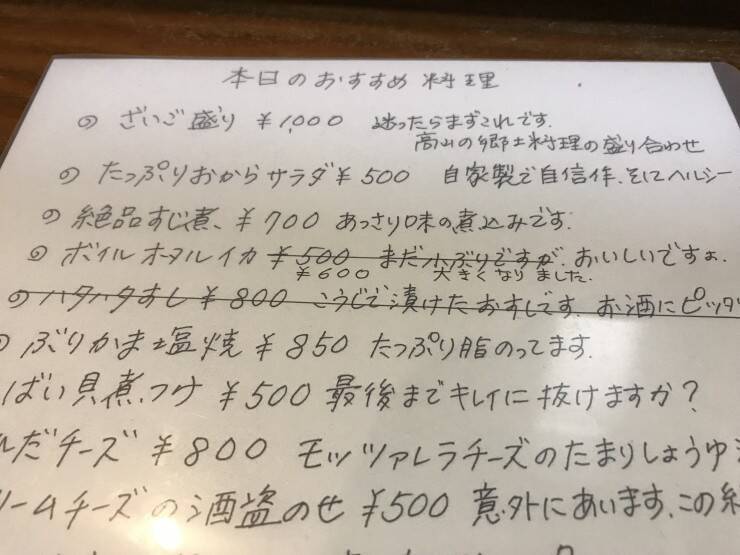 本日のおすすめ料理
◎ ざいご盛り ¥1,000 迷ったらまずこれです。
高山の郷土料理の盛り合わせ
◎ たっぷりおからサラダ ¥500 自家製で自信作、そしてヘルシー
◎ 絶品すじ煮、¥700 あっさり味の煮込みです。
◎ ボイルホタルイカ ¥500 まだ小ぶりですが、おいしいですよ。
¥600 大きくなりました。
◎ ハタハタすし ¥800 こうじで漬けたおすしです。お酒にピッタ
ぶりかま塩焼 ¥850 たっぷり脂のってます。
ばい貝煮つけ ¥500 最後までキレイに抜けますか?
んだチーズ ¥800 モッツァレラチーズのたまりしょうゆ
リームチーズの酒盗のせ ¥500 意外にあいます。この